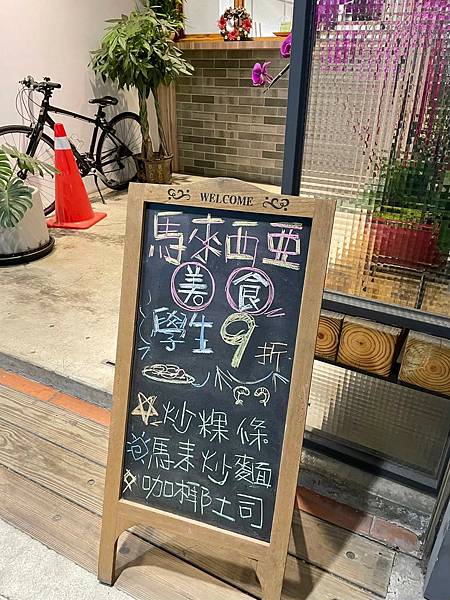 WELCOME
馬來西亞
美食
學生9折
炒粿條
馬來炒麵
咖椰吐司